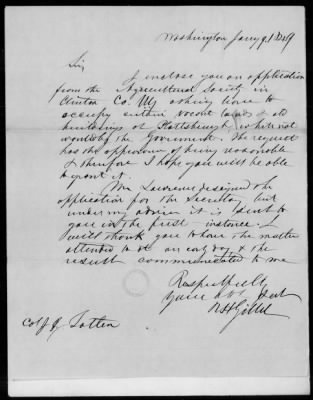 Washington Jany 9, 1849
Sir
I enclose you an application
from the Agricultural Society in
Clinton Co. NY asking leave to
occupy certain vacant lands & old
buildings at Plattsburgh which not
wanted by the Government. The request
has the appearance of being reasonable
& therefore I hope you will be able
to grant it.
Mr Lawrence designed the
application for the Secretary but
under my advice it is sent to
you in the first instance. I
will thank you to have the matter
attended to at an early day, & the
result communicated to me
Respectfully
Your obt Sert
R H Gillet
Col J G Totten